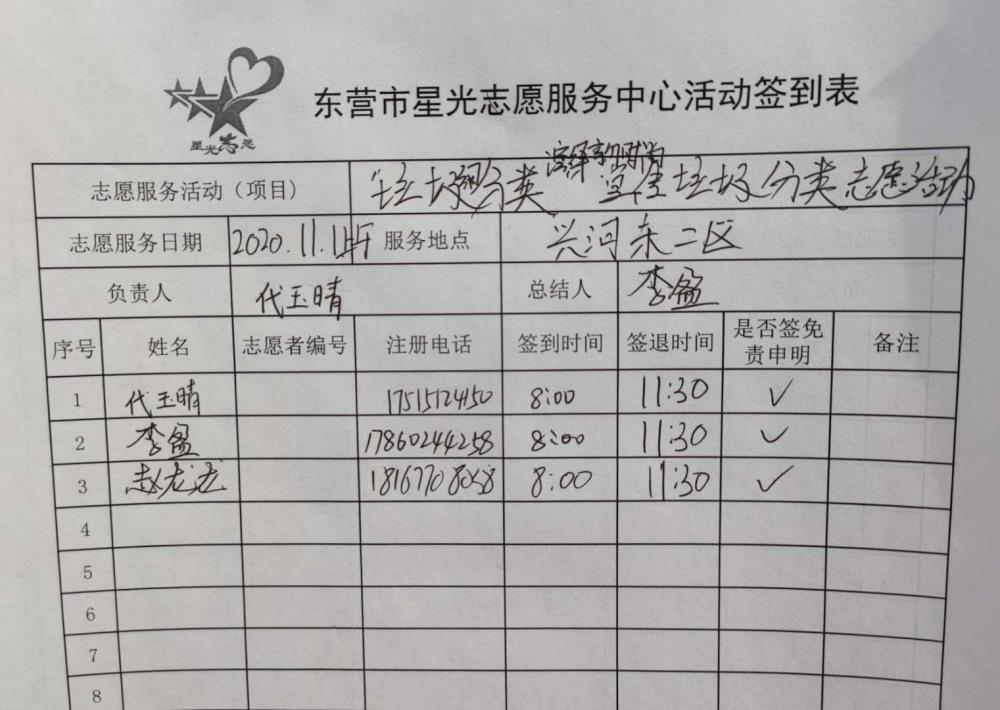 星光志愿
东营市星光志愿服务中心活动签到表
志愿服务活动（项目） 垃圾分类 宣传垃圾分类志愿活动
志愿服务日期 2020.11.1 服务地点 兴河东二区
负责人 代玉晴 总结人 李盈
序号 姓名 志愿者编号 注册电话 签到时间 签退时间 是否签免责申明 备注
1 代玉晴 17515724150 8:00 11:30 ✓
2 李盈 17860244258 8:00 11:30 ✓
3 赵龙龙 18167708058 8:00 11:30 ✓
4
5
6
7
8